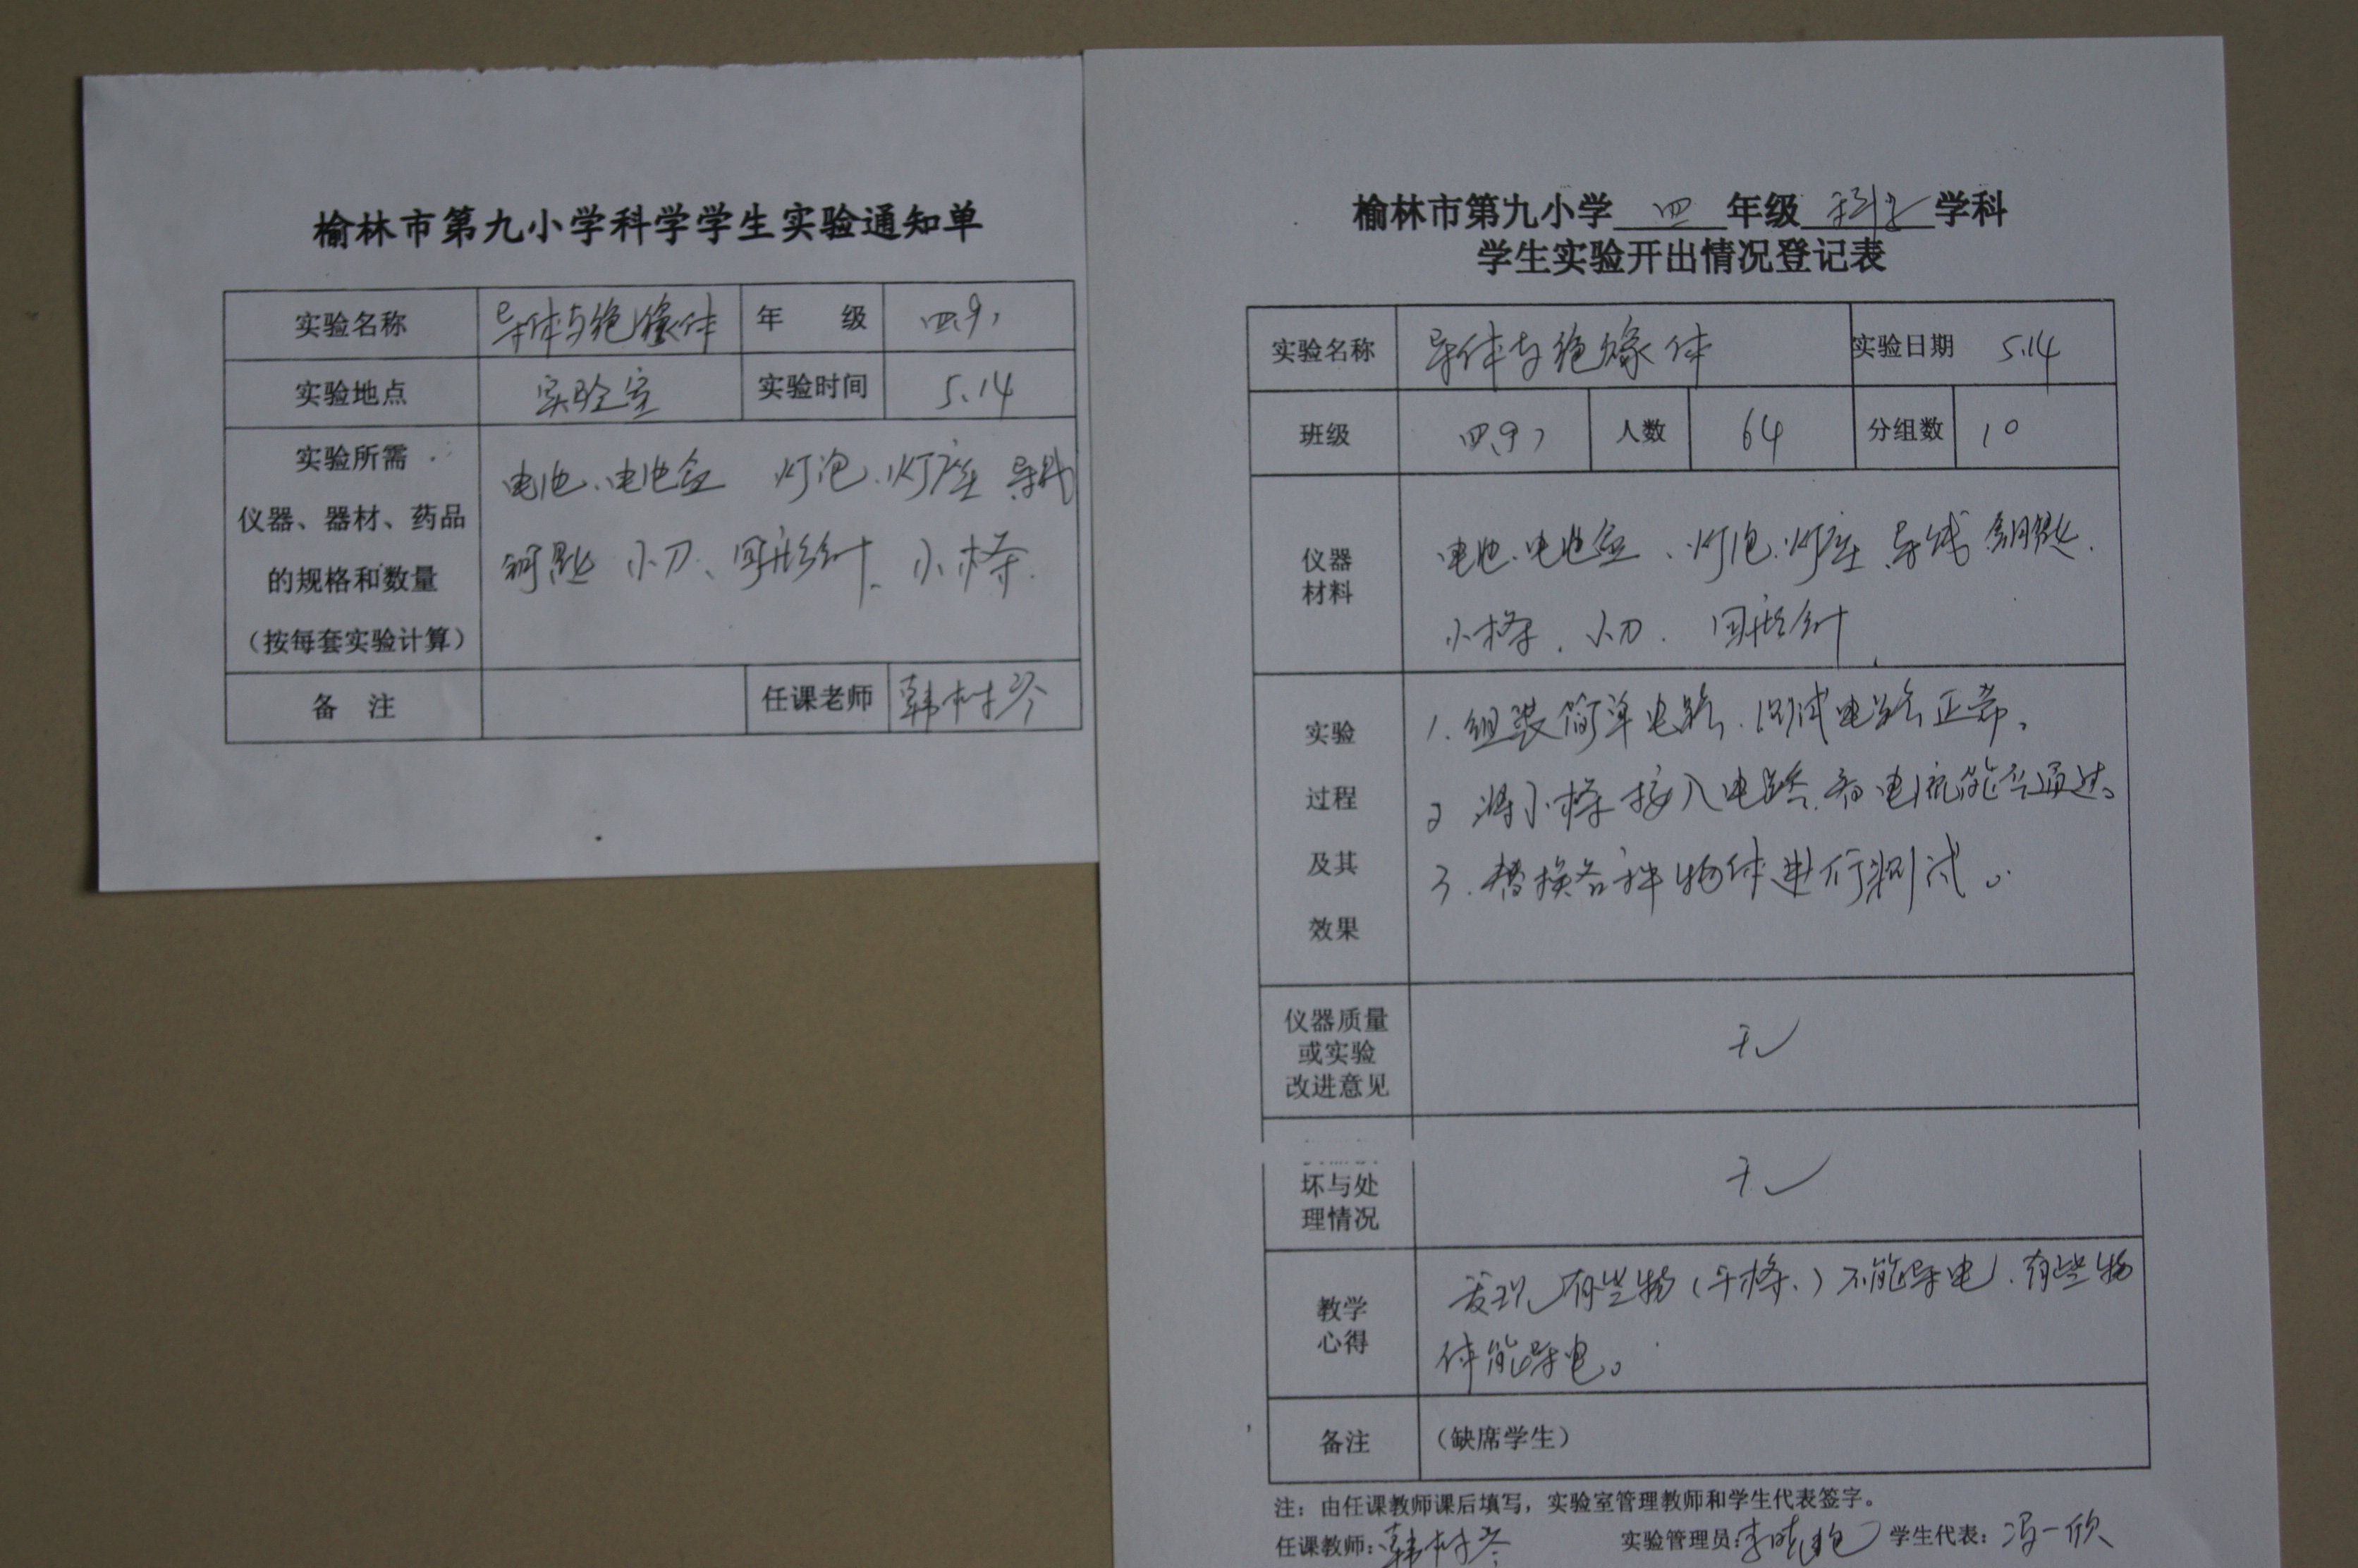 榆林市第九小学科学学生实验通知单
实验名称 导体与绝缘体 年 级 四.9)
实验地点 实验室 实验时间 5.14
实验所需
仪器、器材、药品
的规格和数量
（按每套实验计算）
电池、电池盒 灯泡、灯座 导线
钥匙 小刀、回形针、小棒.
备 注 任课老师
榆林市第九小学 四 年级 科学 学科
学生实验开出情况登记表
实验名称 导体与绝缘体 实验日期 5.14
班级 四.9) 人数 64 分组数 10
仪器
材料
电池、电池盒、灯泡、灯座 导线 钥匙.
小棒. 小刀. 回形针
实验
过程
及其
效果
1. 组装简单电路、测试电路正常。
2 将小棒接入电路.看电流能否通过。
3. 替换各种物体进行测试。
仪器质量
或实验
改进意见
无
坏与处
理情况
无
教学
心得
发现有些物(木棒、)不能导电、有些物
体能导电。
备注 （缺席学生）
注：由任课教师课后填写，实验室管理教师和学生代表签字。
任课教师: 实验管理员: 学生代表: 冯一欣